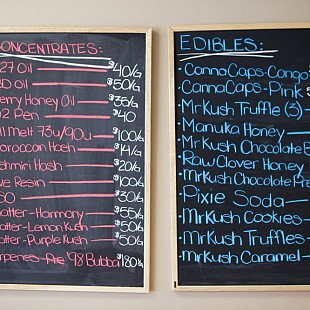 CONCENTRATES:
727 Oil — $40/G
BD Oil — $50/G
erry Honey Oil — $35/G
O2 Pen — $40
ll Melt 73u/90u — $100/G
oroccan Hash — $14/G
ashmiri Hash — $20/G
ve Resin — $100/G
SO — $30/G
atter-Harmony — $55/G
atter-Lemon Kush — $50/G
atter-Purple Kush — $50/G
erpenes-Pre '98 Bubba $180/G
EDIBLES:
• CannaCaps-Congo
• CannaCaps-Pink
• MrKush Truffle (3) —
• Manuka Honey —
• MrKush Chocolate B
• Raw Clover Honey
• MrKush Chocolate Pre
• Pixie Soda —
• MrKush Cookies —
• MrKush Truffles —
• MrKush Caramel —